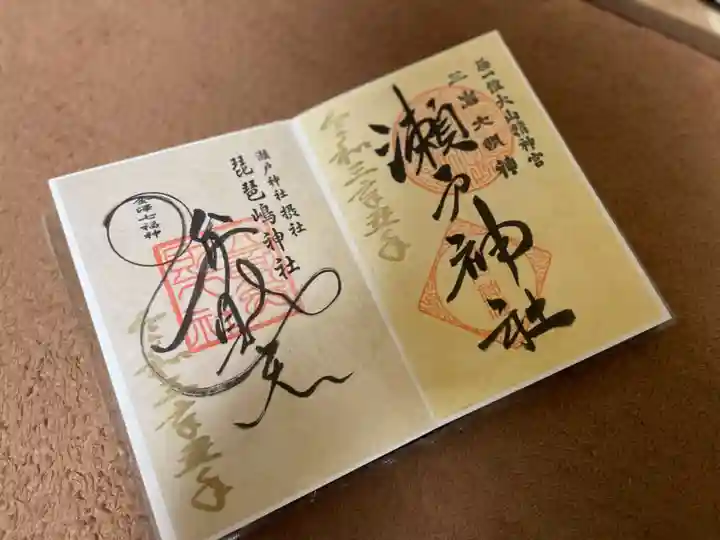 正一位大山積神宮
三島大明神
瀬戸神社
令和三年丑年
瀬戸神社 摂社
琵琶嶋神社
弁財天
金澤七福神
令和三年丑年